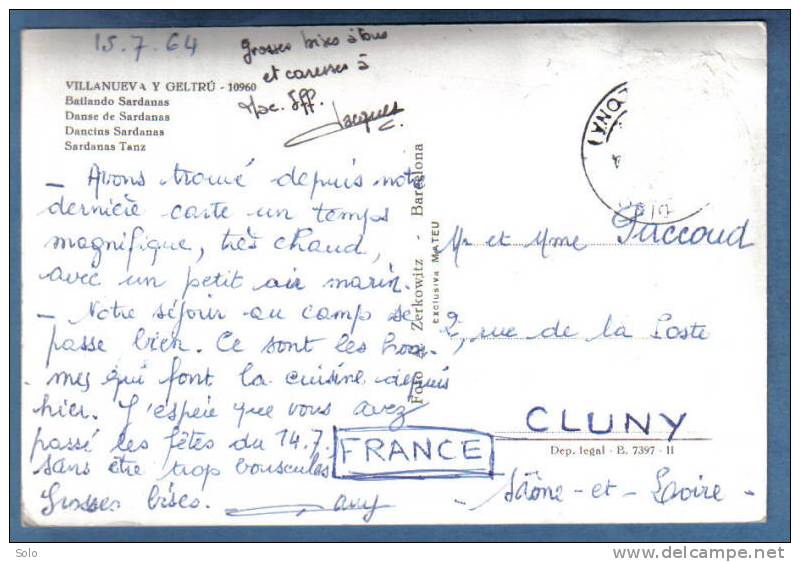 15.7.64
grosses bises à tous
et caresses à
Jacques
VILLANUEVA Y GELTRÚ - 10960
Bailando Sardanas
Danse de Sardanas
Dancins Sardanas
Sardanas Tanz
- Avons trouvé depuis notre
dernière carte un temps
magnifique, très chaud,
avec un petit air marin.
- Notre séjour au camp se
passe bien. Ce sont les hom-
mes qui font la cuisine depuis
hier. J'espère que vous avez
passé les fêtes du 14.7.
sans être trop bousculés
Grosses bises.
Foto Zerkowitz - Barcelona
EXCLUSIVA MATEU
Mr et Mme Puccoud
2, rue de la Poste
CLUNY
FRANCE
Dep. legal - B. 7397 - II
Saône-et-Loire
Solo
www.delcampe.net